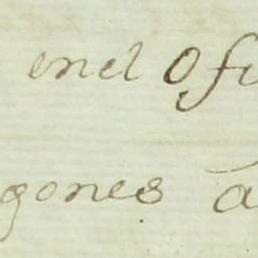 enel Ofi
gones a